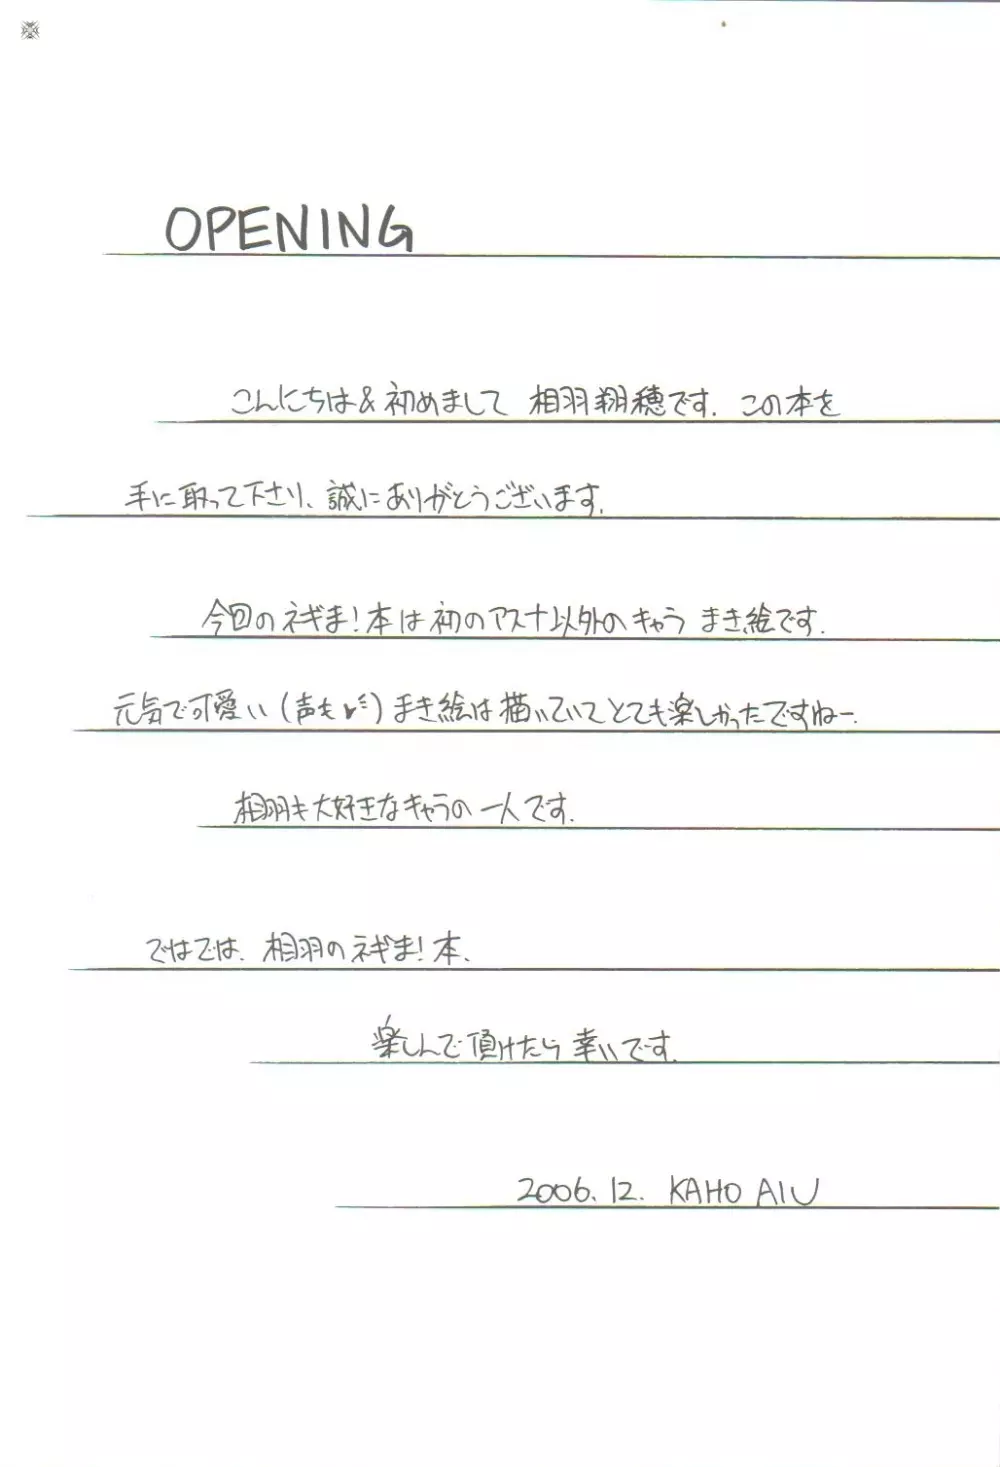 OPENING
こんにちは&初めまして 相羽翔穂です. この本を
手に取って下さり、誠にありがとうございます.
今回のネギま!本は初のアスナ以外のキャラ まき絵です.
元気で可愛い(声も♥)まき絵は描いていてとても楽しかったですねー.
相羽も大好きなキャラの一人です.
ではでは. 相羽のネギま!本.
楽しんで頂けたら幸いです.
2006.12. KAHO AIU